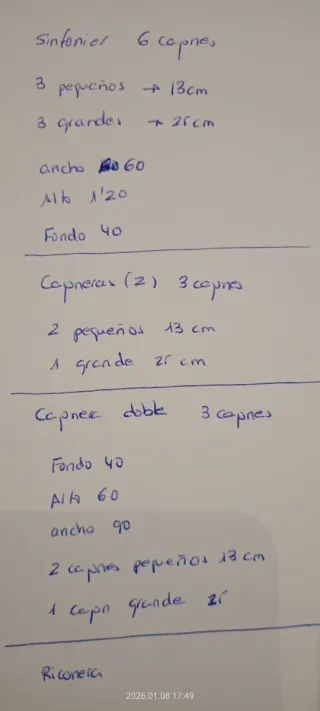 Sinfonier 6 capnes
3 pequeños → 13cm
3 grandes → 25cm
ancho 60
Alto 1'20
Fondo 40
Capneras (2) 3 capnes
2 pequeños 13 cm
1 grande 25 cm
Capnera doble 3 capnes
Fondo 40
Alto 60
ancho 90
2 capnes pequeños 13 cm
1 capn grande 25
Riconera
2026.01.08 17:49